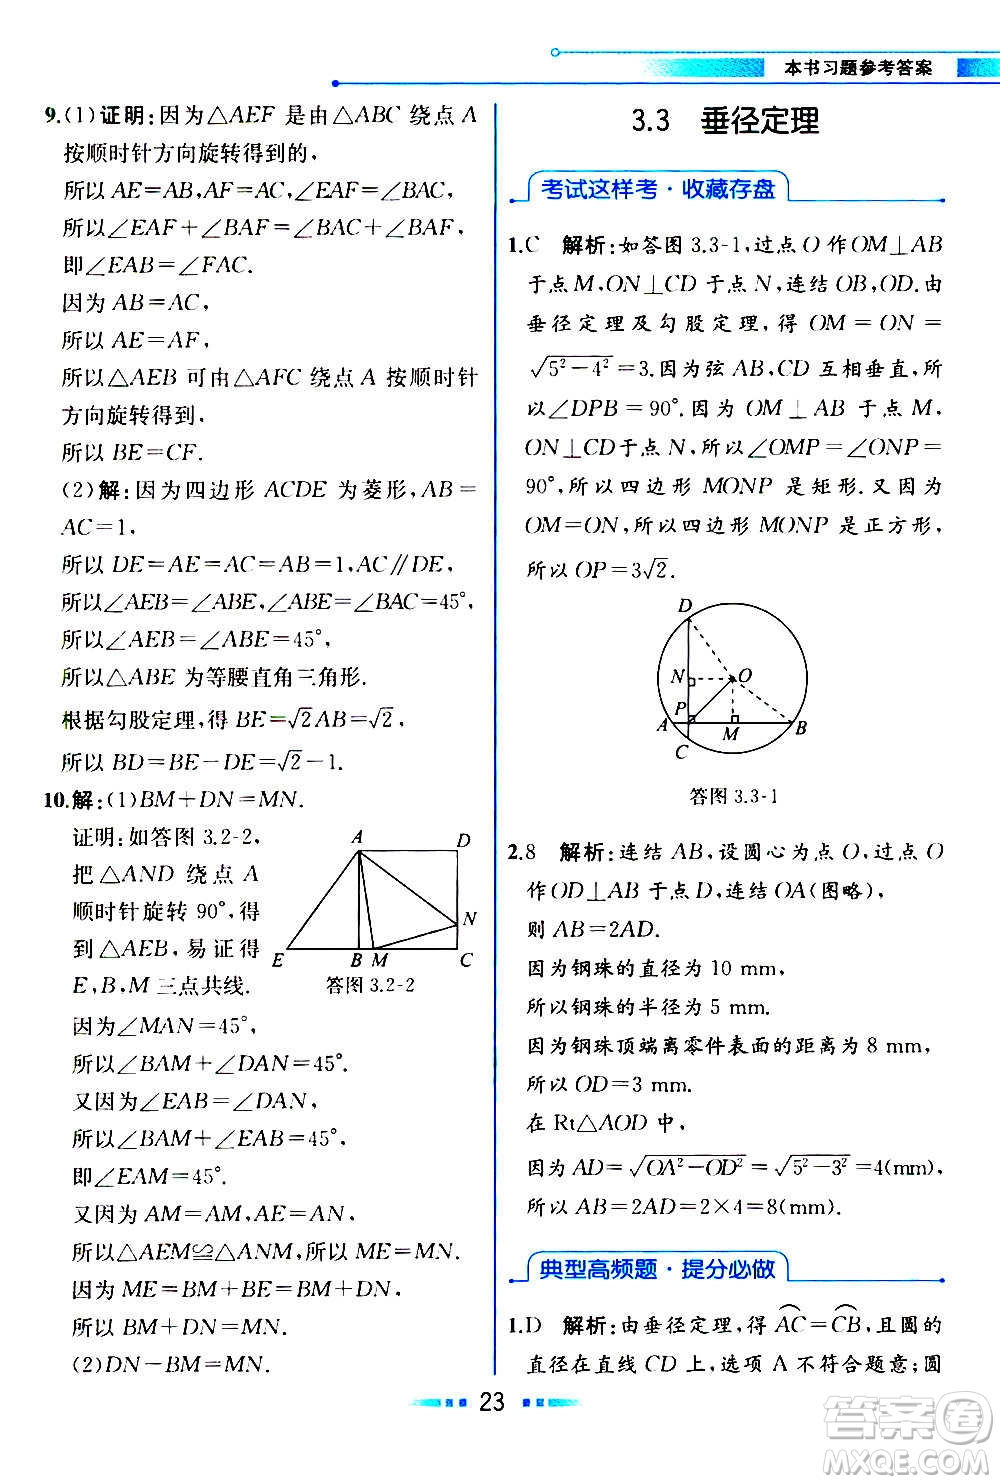 本书习题参考答案
9.(1)证明:因为△AEF 是由△ABC 绕点 A
按顺时针方向旋转得到的,
所以 AE=AB,AF=AC,∠EAF=∠BAC.
所以∠EAF+∠BAF=∠BAC+∠BAF,
即∠EAB=∠FAC.
因为 AB=AC,
所以 AE=AF,
所以△AEB 可由△AFC 绕点 A 按顺时针
方向旋转得到,
所以 BE=CF.
(2)解:因为四边形 ACDE 为菱形,AB=
AC=1,
所以 DE=AE=AC=AB=1,AC∥DE,
所以∠AEB=∠ABE,∠ABE=∠BAC=45°,
所以∠AEB=∠ABE=45°,
所以△ABE 为等腰直角三角形.
根据勾股定理,得 BE=√2AB=√2,
所以 BD=BE-DE=√2-1.
10.解:(1)BM+DN=MN.
证明:如答图 3.2-2,
把△AND 绕点 A
顺时针旋转 90°,得
到△AEB,易证得
E,B,M 三点共线.
A D
N
E B M C
答图 3.2-2
因为∠MAN=45°,
所以∠BAM+∠DAN=45°.
又因为∠EAB=∠DAN,
所以∠BAM+∠EAB=45°,
即∠EAM=45°.
又因为 AM=AM,AE=AN,
所以△AEM≌△ANM,所以 ME=MN.
因为 ME=BM+BE=BM+DN,
所以 BM+DN=MN.
(2)DN-BM=MN.
3.3 垂径定理
考试这样考·收藏存盘
1.C 解析:如答图 3.3-1,过点 O 作 OM⊥AB
于点 M,ON⊥CD 于点 N,连结 OB,OD.由
垂径定理及勾股定理,得 OM=ON=
√5²-4²=3.因为弦 AB,CD 互相垂直,所
以∠DPB=90°.因为 OM⊥AB 于点 M,
ON⊥CD于点 N,所以∠OMP=∠ONP=
90°,所以四边形 MONP 是矩形.又因为
OM=ON,所以四边形 MONP 是正方形,
所以 OP=3√2.
D
N O
P
A M B
C
答图 3.3-1
2.8 解析:连结 AB,设圆心为点 O,过点 O
作OD⊥AB 于点 D,连结 OA(图略),
则 AB=2AD.
因为钢珠的直径为 10 mm,
所以钢珠的半径为 5 mm.
因为钢珠顶端离零件表面的距离为 8 mm,
所以 OD=3 mm.
在 Rt△AOD 中,
因为 AD=√OA²-OD²=√5²-3²=4(mm),
所以 AB=2AD=2×4=8(mm).
典型高频题·提分必做
1.D 解析:由垂径定理,得 AC=CB,且圆的
直径在直线 CD 上,选项 A 不符合题意;圆
23
答案圈
MXQE.COM